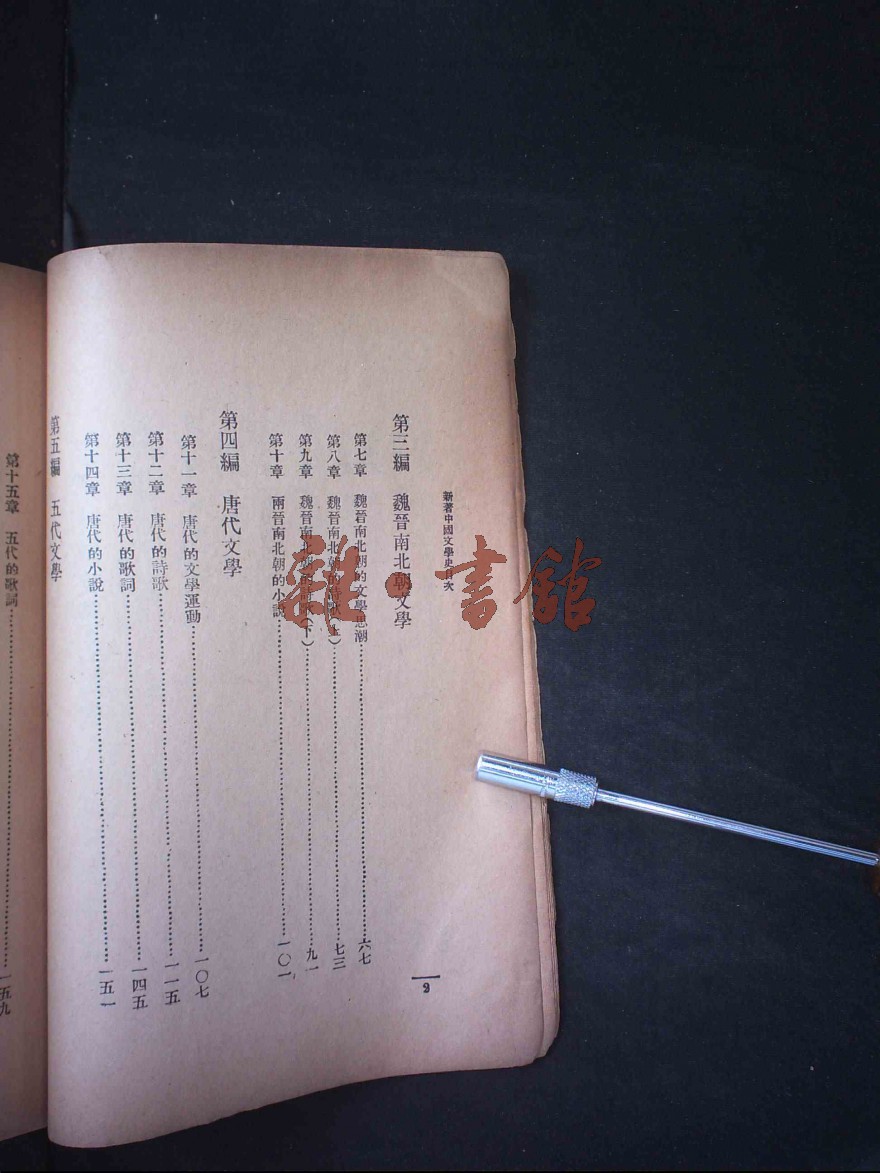 新著中國文學史目次
2
第三編　魏晉南北朝文學
第七章　魏晉南北朝的文學思潮……六七
第八章　魏晉南北朝的詩歌(上)……七三
第九章　魏晉南北朝的詩歌(下)……九一
第十章　兩晉南北朝的小說……一〇一
第四編　唐代文學
第十一章　唐代的文學運動……一〇七
第十二章　唐代的詩歌……一一五
第十三章　唐代的歌詞……一四五
第十四章　唐代的小說……一五一
第五編　五代文學
第十五章　五代的歌詞……一五九
雜·書館